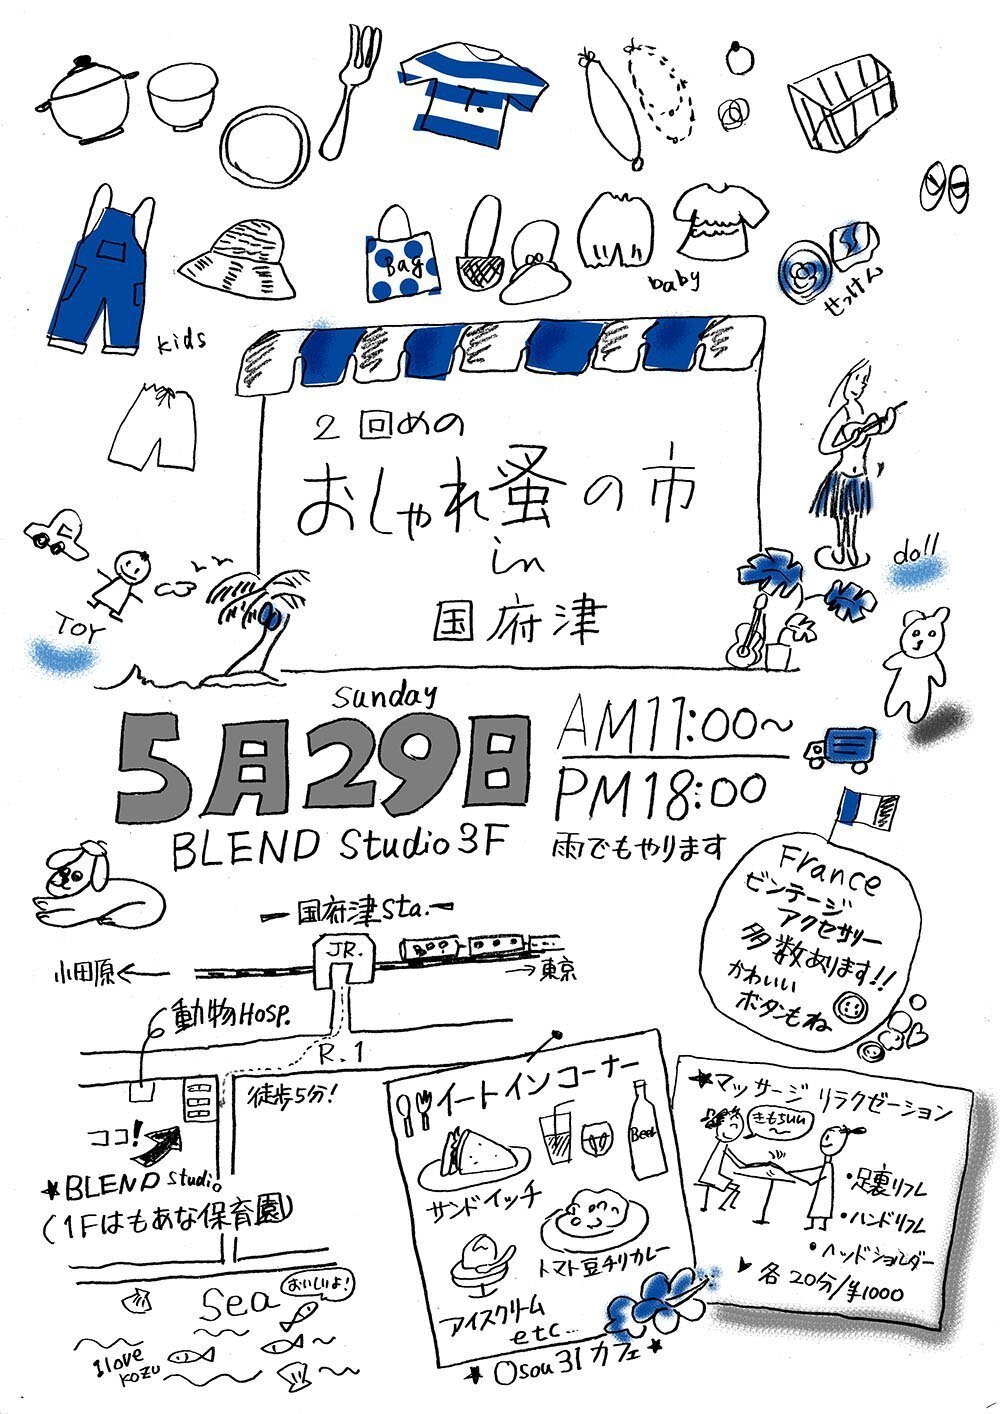 Bag
baby
せっけん
kids
2回めの
おしゃれ蚤の市
in
国府津
doll
TOY
Sunday
5月29日
AM11:00~
PM18:00
BLEND Studio 3F
雨でもやります
France
ビンテージ
アクセサリー
多数あります!!
かわいい
ボタンもね
国府津Sta.
JR.
小田原←
→東京
動物Hosp.
R.1
徒歩5分!
ココ!
★BLEND Studio
(1Fはもあな保育園)
Sea
おいしいよ!
I love
KOZU
イートインコーナー
Beer
サンドイッチ
トマト豆チリカレー
アイスクリーム
etc...
★Osou31カフェ★
★マッサージ リラクゼーション
きもちいい
~
・足裏リフレ
・ハンドリフレ
・ヘッドショルダー
各20分/¥1000